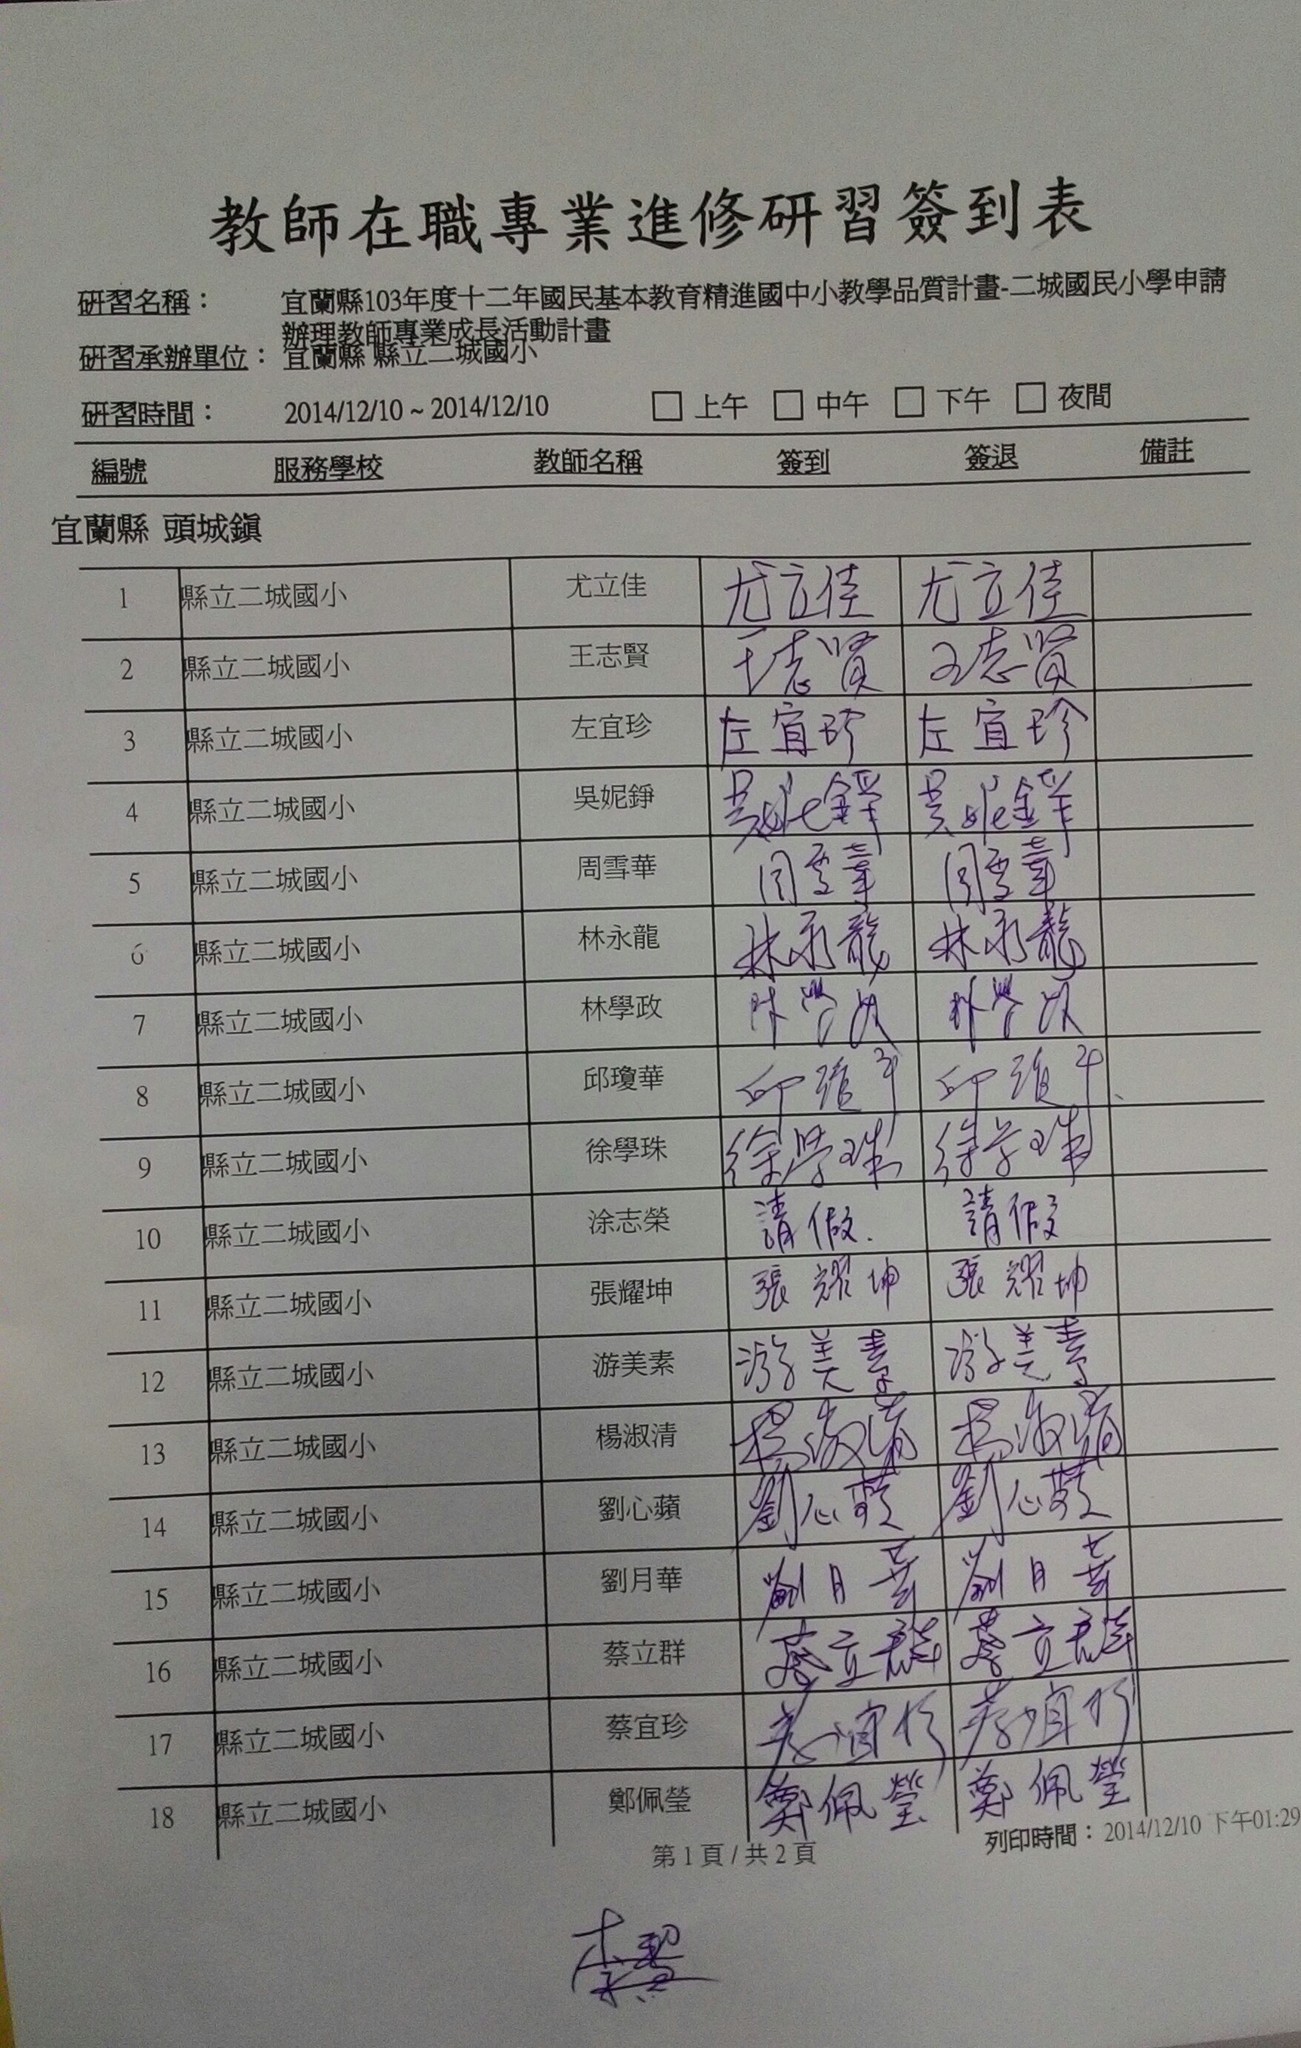 教師在職專業進修研習簽到表
研習名稱： 宜蘭縣103年度十二年國民基本教育精進國中小教學品質計畫-二城國民小學申請
辦理教師專業成長活動計畫
研習承辦單位： 宜蘭縣 縣立二城國小
研習時間： 2014/12/10 ~ 2014/12/10 □ 上午 □ 中午 □ 下午 □ 夜間
編號 服務學校 教師名稱 簽到 簽退 備註
宜蘭縣 頭城鎮
1 縣立二城國小 尤立佳 尤立佳 尤立佳
2 縣立二城國小 王志賢 王志賢 王志賢
3 縣立二城國小 左宜珍 左宜珍 左宜珍
4 縣立二城國小 吳妮錚 吳妮錚 吳妮錚
5 縣立二城國小 周雪華 周雪華 周雪華
6 縣立二城國小 林永龍 林永龍 林永龍
7 縣立二城國小 林學政 林學政 林學政
8 縣立二城國小 邱瓊華 邱瓊華 邱瓊華
9 縣立二城國小 徐學珠 徐學珠 徐學珠
10 縣立二城國小 涂志榮 請假. 請假
11 縣立二城國小 張耀坤 張耀坤 張耀坤
12 縣立二城國小 游美素 游美素 游美素
13 縣立二城國小 楊淑清 楊淑清 楊淑清
14 縣立二城國小 劉心蘋 劉心蘋 劉心蘋
15 縣立二城國小 劉月華 劉月華 劉月華
16 縣立二城國小 蔡立群 蔡立群 蔡立群
17 縣立二城國小 蔡宜珍 蔡宜珍 蔡宜珍
18 縣立二城國小 鄭佩瑩 鄭佩瑩 鄭佩瑩
第 1 頁 / 共 2 頁
列印時間： 2014/12/10 下午01:29